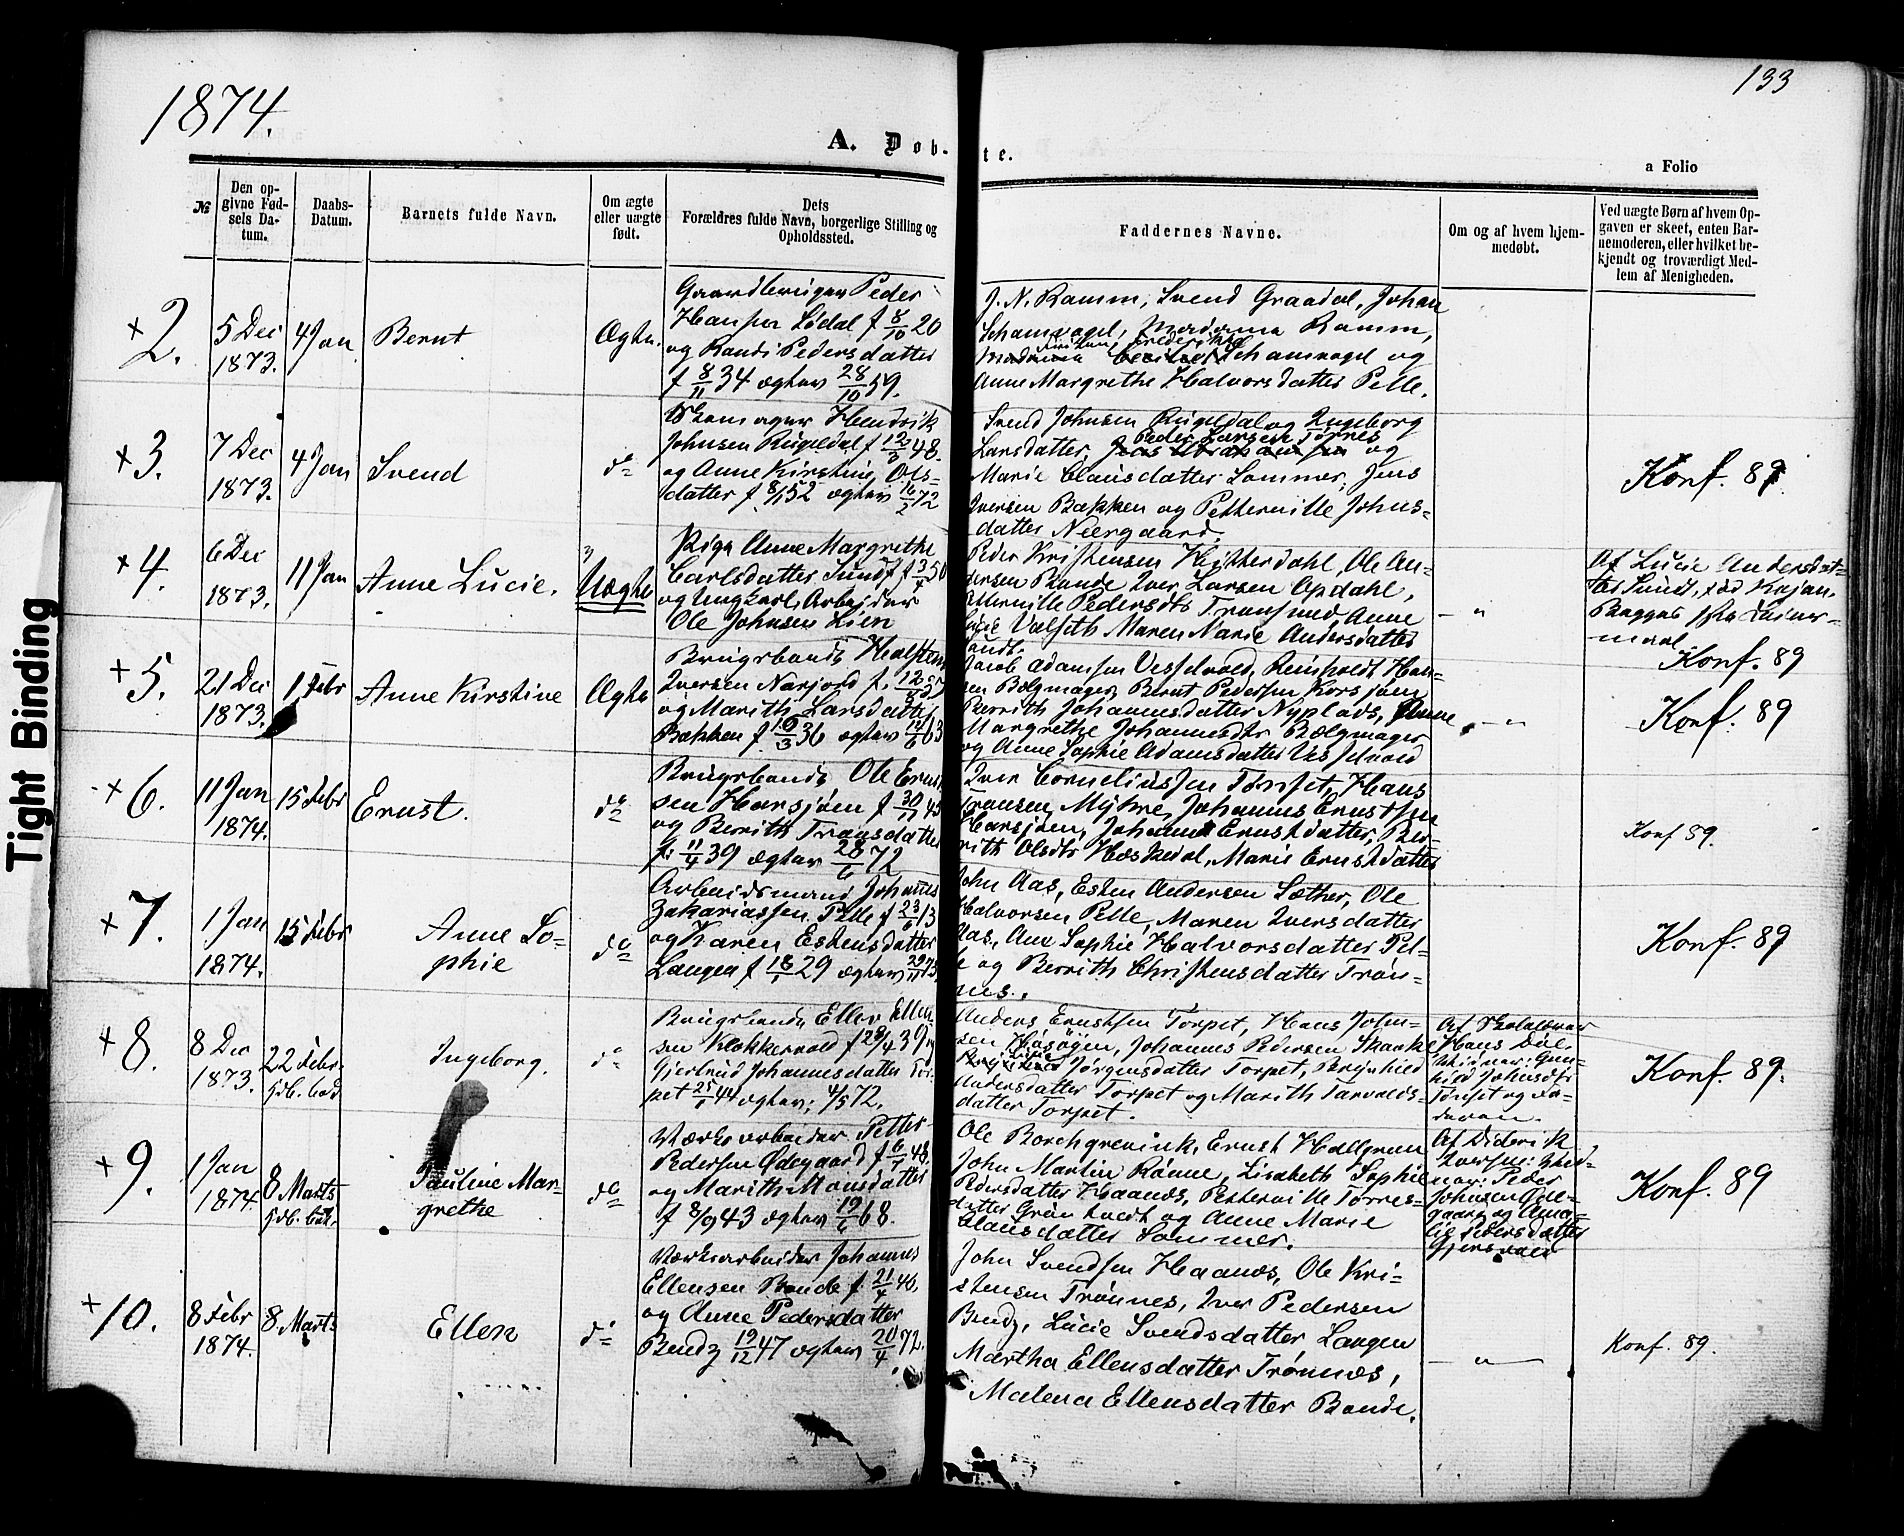 1874.
133
A. Døb-
te.
a Folio
№
Den op-
givne Fød-
sels Da-
tum.
Daabs-
Datum.
Barnets fulde Navn.
Om ægte
eller uægte
født.
Dets
Forældres fulde Navn, borgerlige Stilling og
Opholdssted.
Faddernes Navne.
Om og af hvem hjem-
medøbt.
Ved uægte Børn af hvem Op-
gaven er skeet, enten Bar-
nemoderen, eller hvilket be-
kjendt og troværdigt Med-
lem af Menigheden.
+ 2.
5 Dec
1873.
4 Jan
Bernt
Ægte.
Gaardbruger Peder
Hansen Lødal f 8/10 20
og Randi Pedersdatter
f 8/11 34 egtev 28/10 59.
J. N. Ramm, Svend Graadal, Johan
Schamvogel, Madame Ramm,
Schamvogel og
Anne Margrethe Halvorsdatter Pelle.
+ 3.
7 Dec
1873.
4 Jan
Svend
do
Skomager Hendrik
Johnsen Rugeldal f 12/3 48.
og Anne Kirstine Ols-
datter f 8/1 52 egtev 16/2 72
Svend Johnsen Rugeldal og Ingeborg
Peder Larsen Tørnes
Larsdatter, og
Marie Clausdatter Sommer, Jens
Iversen Bækken og Petternille Johns-
datter Neergaard.
Konf. 89.
+ 4.
6 Dec
1873.
11 Jan
Anne Lucie.
Uægte
Pige Anne Margrethe
Carlsdatter Sundt f 3/5 50
og Ungkarl, Arbejder
Ole Johnsen Lien
Peder Kristensen Hitterdahl, Ole An-
dersen Bonde Iver Larsen Opdahl,
Pedersdtr Trønsmed, Anne
Lucie Valseth Maren Marie Andersdatter
Sundt.
— "
Af Lucie Andersdat-
ter Sundt, fød
Konf. 89
+ 5.
21 Dec
1873.
1 Febr
Anne Kirstine
Ægte
Brugsbonde Halsten
Iversen Narjord f. 12/8 37
og Marith Larsdatter
Bækken f 16/3 36 egtev 14/6 63
Jacob Adamsen Vesselvold, Reinholdt Han-
sen Bælgmager, Bernt Pedersen Korsjøen
Berrith Johannesdatter Nyplads, Anne
Margrethe Johannesdtr Bælgmager
og Anne Sophie Adamsdatter Vesselvold
— "
Konf. 89
+ 6.
11 Jan
1874.
15 Febr
Ernst.
do
Brugsbonde Ole Ernst-
sen Harsjøen f 30/11 45
og Berrith Tronsdatter
f. 11/4 39 egtev 28/6 72
Iver Corneliussen Tørset, Hans
Tronsen Myhre, Johannes Ernstsen
Harsjøen, Johanne Ernstdatter, Ber-
rith Olsdtr Hæskedal, Marie Ernstdatter
Konf 89.
+ 7.
1 Jan
1874.
15 Febr
Anne So-
phie
do
Arbeidsmand Johannes
Zakariassen Pelle f 23/6 13
og Karen Estensdatter
Langen f 18/1 29 egtev 29/11 73
John Aas, Esten Andersen Sæther, Ole
Halvorsen Pelle, Maren Iversdatter
Aas, Ane Sophie Halvorsdatter Pel-
le og Berrith Christensdatter Trøn-
nes.
Konf. 89
+ 8.
8 Dec
1873.
22 Febr.
hjdb. bad
Ingeborg.
do
Brugsbonde Ellev Ellev-
sen Klokkervold f 28/4 39 og
Gjertrud Johannesdatter Tor-
pet 25/1 44 egtev: 4/5 72.
Anders Ernstsen Torpet, Hans John-
sen Hosøyen, Johannes Pedersen Skanke
Jørgensdatter Torpet, Brynhild
Andersdatter Torpet og Marith Tarvalds-
datter Torpet.
Af Skolelærer
Hans Døl.
Vidner: Gun-
hild Johnsdtr
Tørset og Fa-
deren.
Konf. 89.
+ 9.
1 Jan
1874.
8 Marts
hjdb. bek.
Pauline Mar-
grethe
do
Værksarbeider Petter
Pedersen Ødegaard f 6/7 48.
og Marith Monsdatter
f 8/9 43 egtev 19/6 68.
Ole Borchgrevink, Ernst Hallgren
John Martin Rønne, Lisabeth Sophie
Pedersdatter Haanæs, Peternille Tørres-
datter Grøntvedt og Anne Marie
Clausdatter Sommer.
Af Diderik
Iversen: Vid-
ner: Peder
Johnsen Øde-
gaard og Ama-
lie Pedersdatter
Gjersvold
Konf. 89
+ 10.
8 Febr
1874.
8. Marts
Ellen
do
Værksarbeider Johannes
Ellensen Bonde f 21/4 40.
og Anne Pedersdatter
Bendz 19/12 47 egtev 20/4 72.
John Svendsen Haanæs, Ole Kri-
stensen Trønnes, Iver Pedersen
Bendz, Lucie Svendsdatter Langen
Martha Ellensdatter Trønnæs,
Malena Ellensdatter Bonde.
— " —
Konf. 89.
Tight Binding